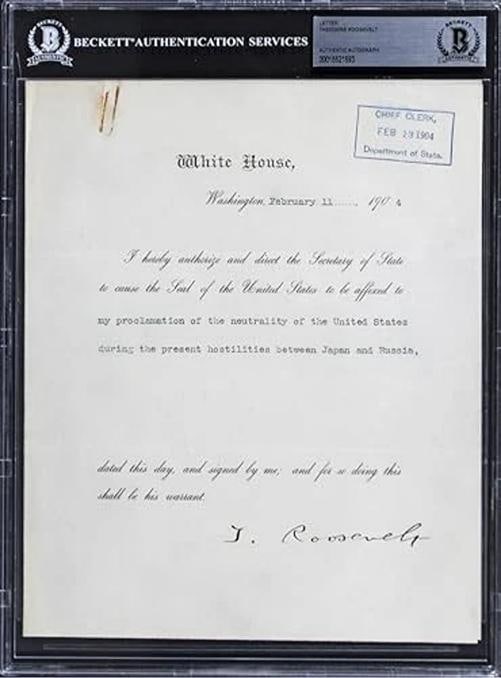 BECKETT
BECKETT AUTHENTICATION SERVICES
LETTER
THEODORE ROOSEVELT
AUTHENTIC AUTOGRAPH
BECKETT
CHIEF CLERK,
FEB 23 1904
Department of State.
White House,
Washington, February 11......, 1904
I hereby authorize and direct the Secretary of State
to cause the Seal of the United States to be affixed to
my proclamation of the neutrality of the United States
during the present hostilities between Japan and Russia,
dated this day, and signed by me; and for so doing this
shall be his warrant.
T. Roosevelt